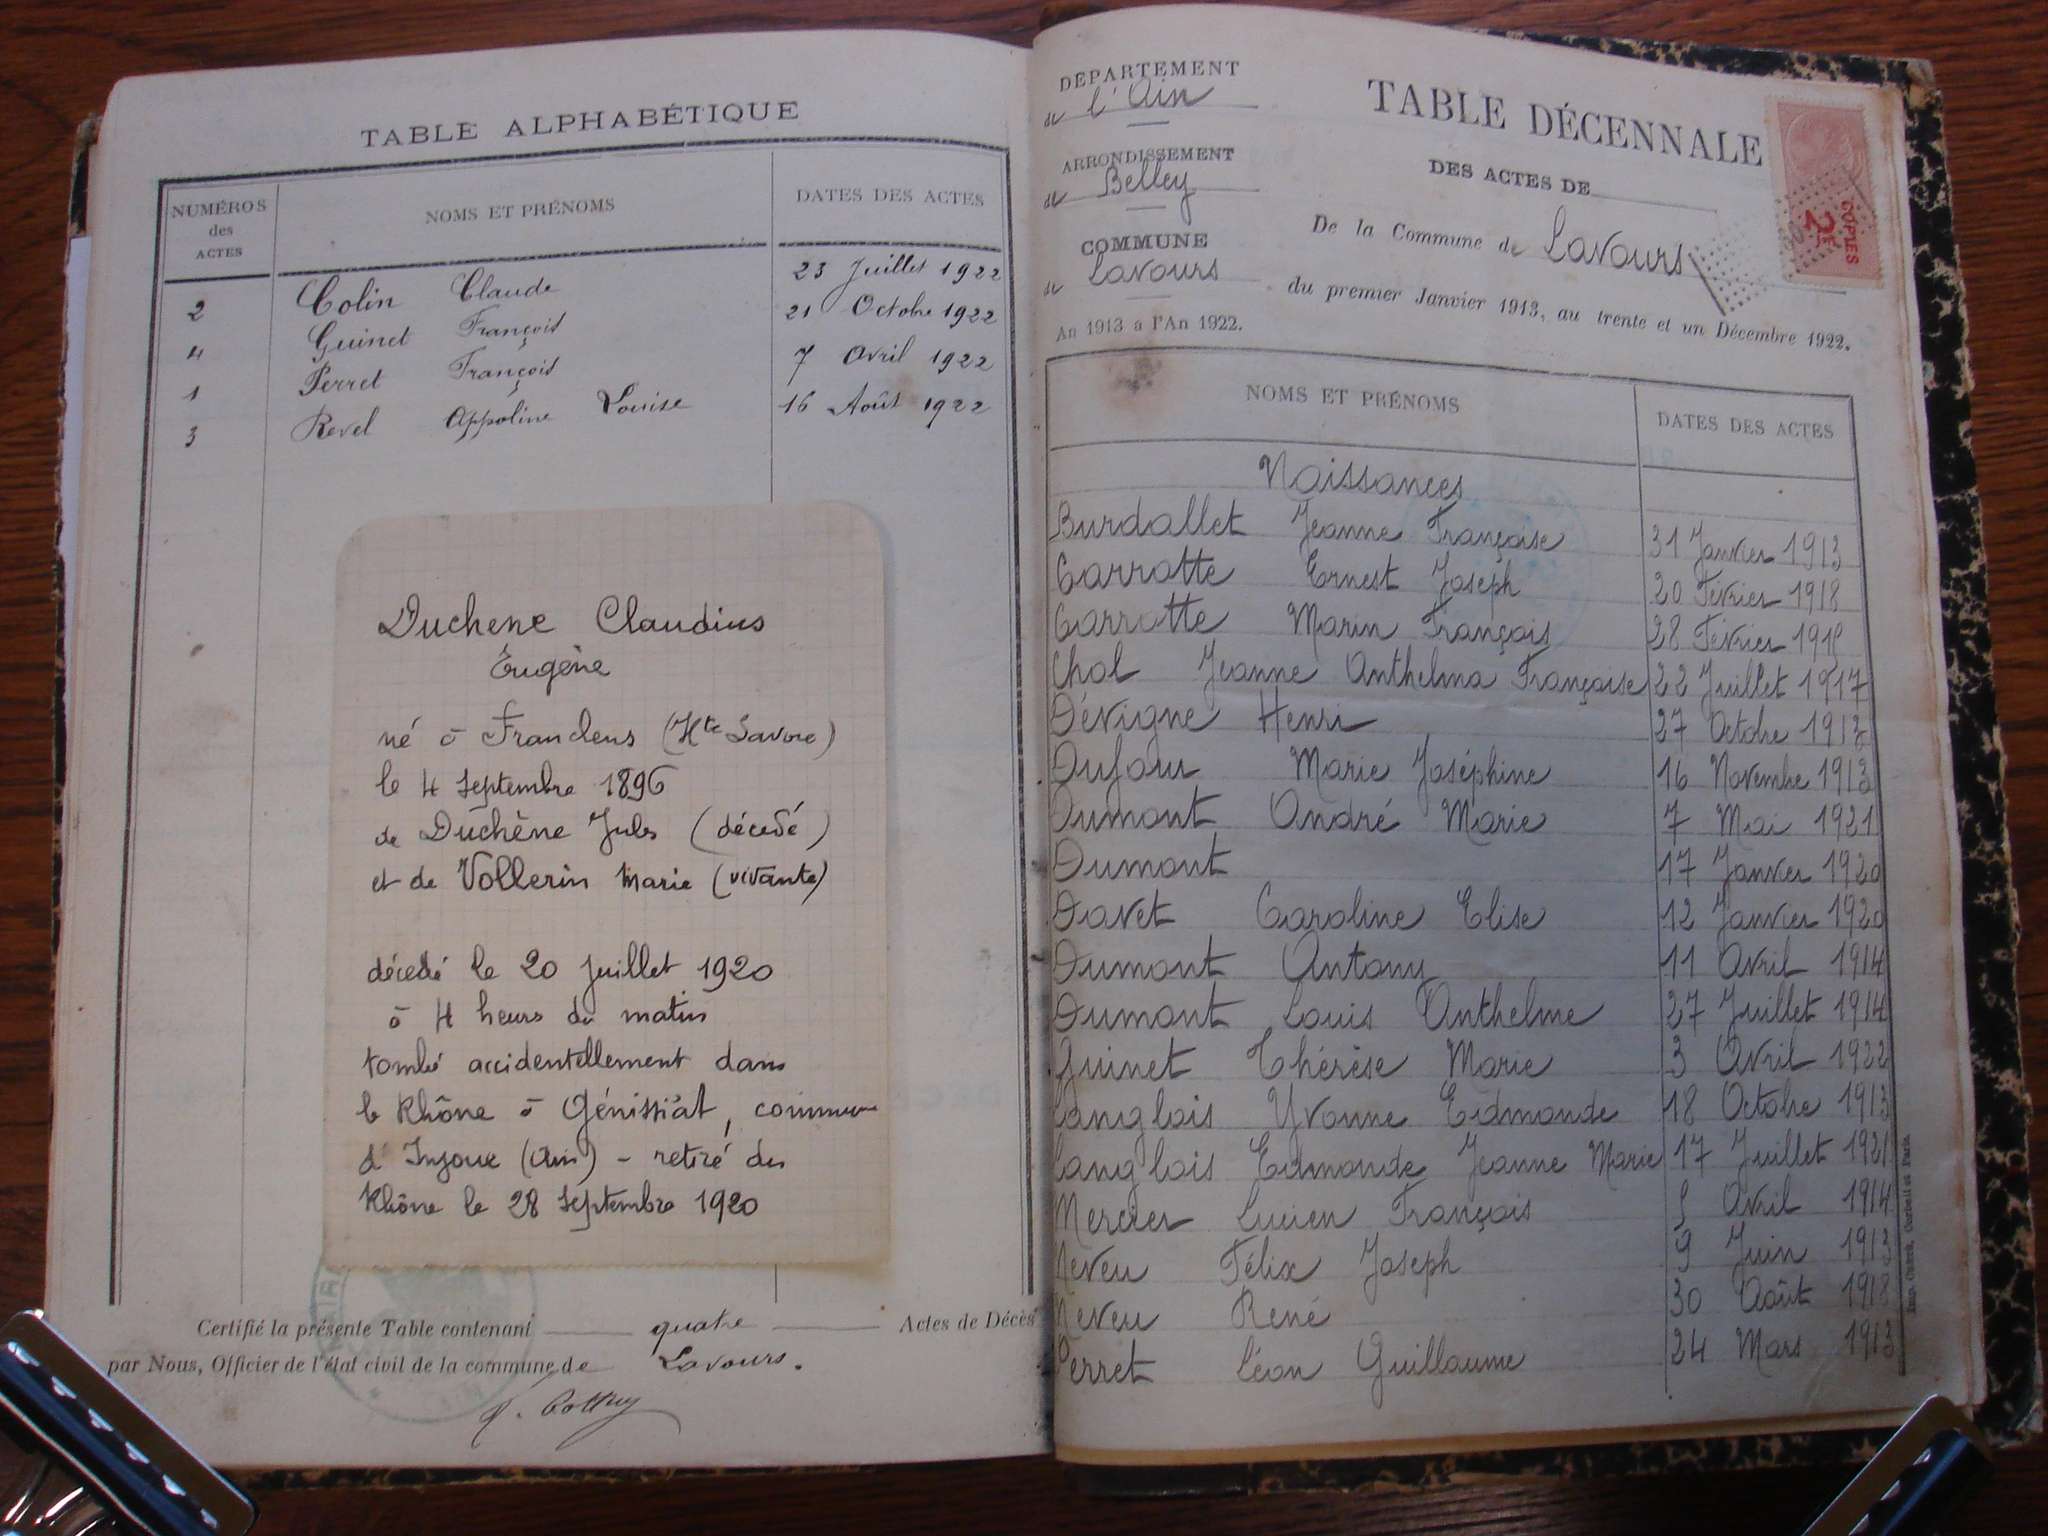 TABLE ALPHABÉTIQUE
NUMÉROS des ACTES NOMS ET PRÉNOMS DATES DES ACTES
2 Colin Claude 23 Juillet 1922
4 Guinet François 21 Octobre 1922
1 Perret François 7 Avril 1922
3 Revel Appoline Louise 16 Août 1922
Duchene Claudius
Eugène
né à Franclens (Hte Savoie)
le 4 septembre 1896
de Duchène Jules (décédé)
et de Vollerin Marie (vivante)
décédé le 20 juillet 1920
à 4 heures du matin
tombé accidentellement dans
le Rhône à Génissiat, commune
d'Injoux (Ain) - retiré du
Rhône le 28 septembre 1920
Certifié la présente Table contenant quatre Actes de Décès
par Nous, Officier de l'état civil de la commune de Lavours.
DÉPARTEMENT
de l'Ain
ARRONDISSEMENT
de Belley
COMMUNE
de Lavours
An 1913 à l'An 1922.
TABLE DÉCENNALE
DES ACTES DE
De la Commune de Lavours
du premier Janvier 1913, au trente et un Décembre 1922.
COPIES
2F
NOMS ET PRÉNOMS DATES DES ACTES
Naissances
Burdallet Jeanne Françoise 31 Janvier 1913
Carrotte Ernest Joseph 20 Février 1918
Carrotte Marin François 28 Février 1918
Chal Jeanne Anthelma Françoise 22 Juillet 1917
Dévigne Henri 27 Octobre 1913
Dufour Marie Joséphine 16 Novembre 1913
Dumont André Marie 7 Mai 1921
Dumont 17 Janvier 1920
Davet Caroline Elise 12 Janvier 1920
Dumont Antony 11 Avril 1914
Dumont Louis Anthelme 27 Juillet 1914
Guinet Thérèse Marie 3 Avril 1922
Langlois Yvonne Edmonde 18 Octobre 1913
Langlois Edmonde Jeanne Marie 17 Juillet 1921
Mercier Lucien François 5 Avril 1914
Neveu Félix Joseph 9 Juin 1913
Neveu René 30 Août 1918
Perret Léon Guillaume 24 Mars 1913